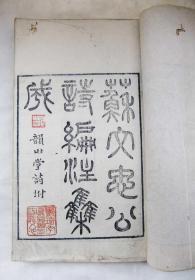 蘇文忠公
詩編注集
成
韻山堂詩州